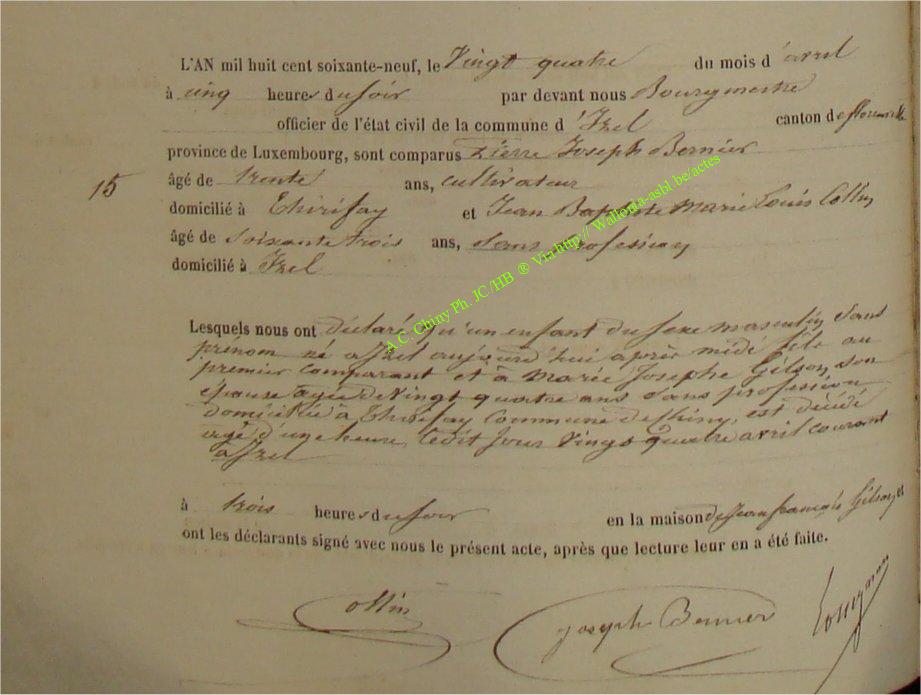 L'AN mil huit cent soixante-neuf, le Vingt quatre du mois d'avril
à cinq heures du soir par devant nous Bourgmestre
officier de l'état civil de la commune d'Izel canton de florenville
province de Luxembourg, sont comparus Pierre Joseph Bernier
15
âgé de trente ans, cultivateur
domicilié à Thirifay et Jean Baptiste Marie Louis Collin
âgé de soixante trois ans, sans profession
domicilié à Izel
A.C. Chiny Ph. JC/HB ® Via http://Wallonia-asbl.be/actes
Lesquels nous ont déclaré qu'un enfant du sexe masculin, sans
prénom né a Izel aujourd'hui après midi fils au
premier comparant et à Marie Josephe Gilson, son
épouse agée de Vingt quatre ans sans profession
domiciliée à Thirifay commune de Chiny, est décédé
agé d'une heure, ledit jour Vingt quatre avril courant
a Izel
à trois heures du soir en la maison de Jean françois Gilson, et
ont les déclarants signé avec nous le présent acte, après que lecture leur en a été faite.
Joseph Bernier